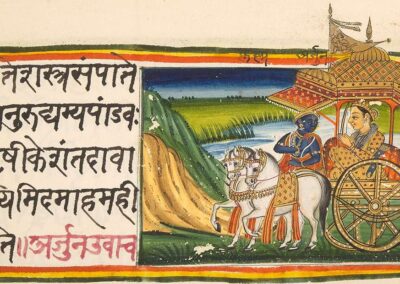 कृष्ण अर्जुन
त्तेशस्त्रसंपाते
नुरुद्यम्यपांडवः
षीकेशंतदावा
यमिदमाहमही
ते॥अर्जुनउवाच